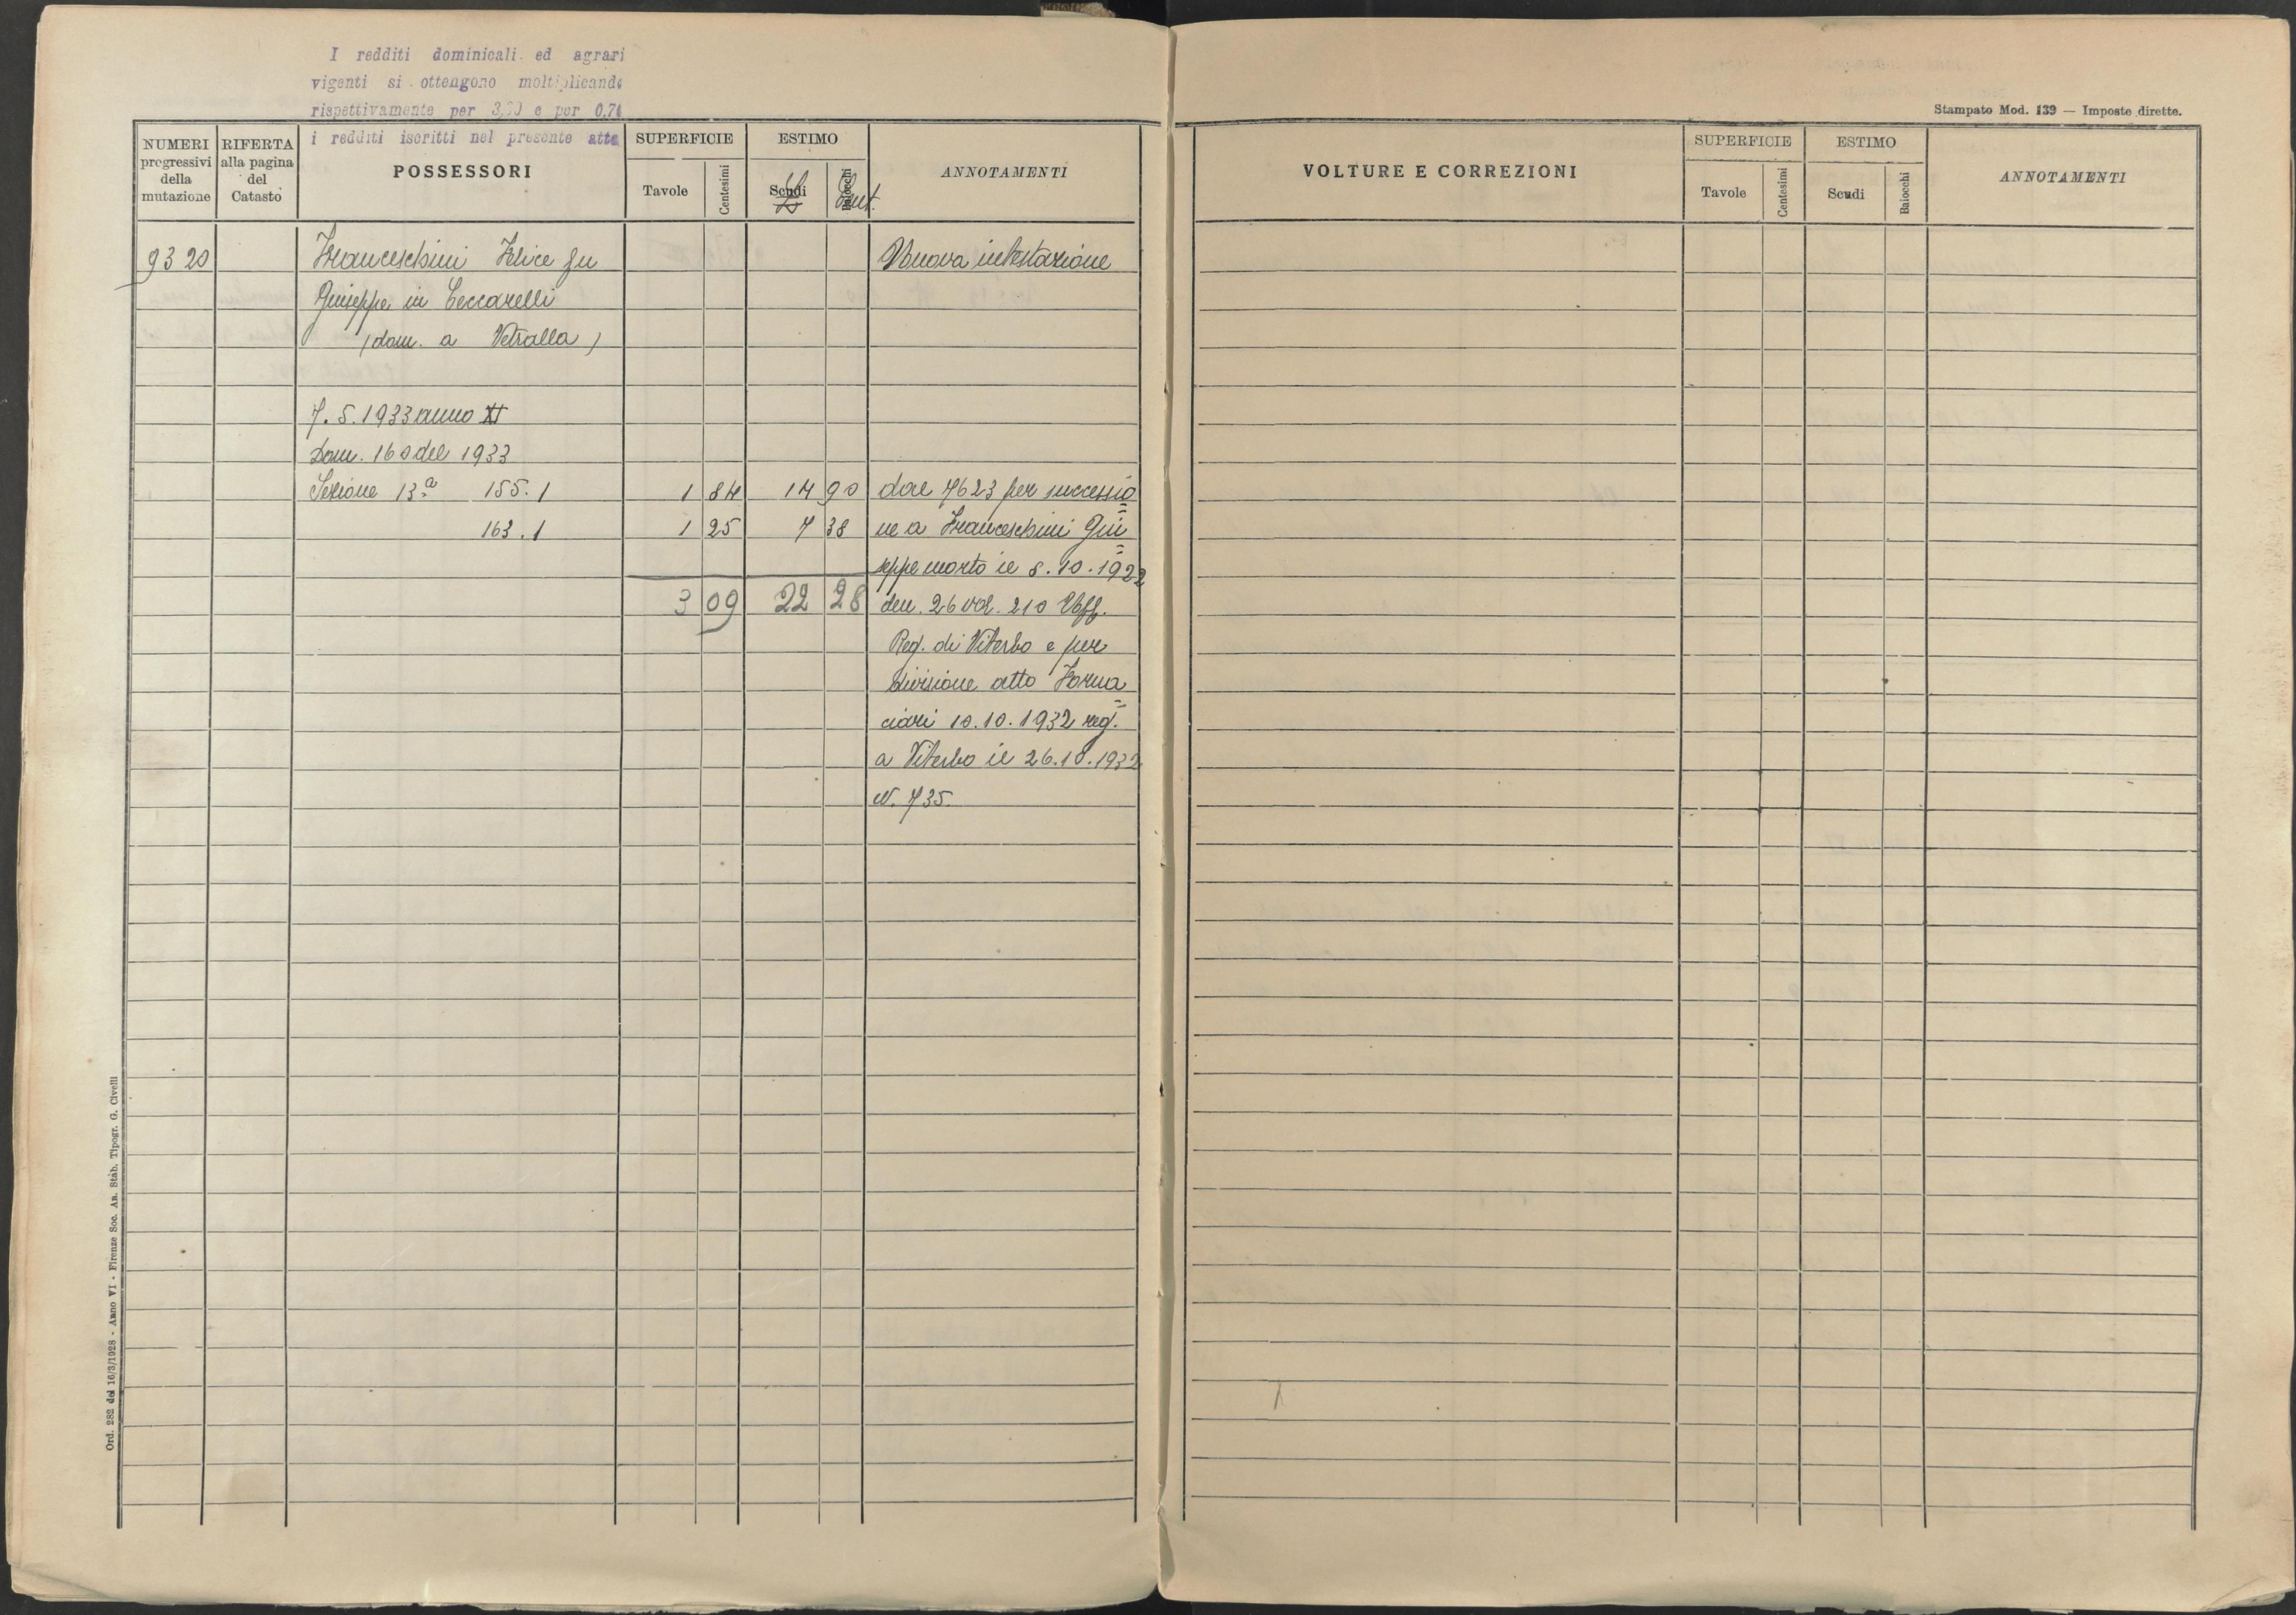 I redditi dominicali ed agrari
vigenti si ottengono moltiplicando
rispettivamente per e per
i redditi iscritti nel presente atto
Stampato Mod. 139 — Imposte dirette.
NUMERI progressivi della mutazione
RIFERTA alla pagina del Catasto
POSSESSORI
SUPERFICIE
Tavole Centesimi
ESTIMO
Scudi Baiocchi
Cent.
ANNOTAMENTI
VOLTURE E CORREZIONI
SUPERFICIE
Tavole Centesimi
ESTIMO
Scudi Baiocchi
ANNOTAMENTI
9320 Franceschini Felice fu Nuova intestazione
Giuseppe in Ceccarelli
(dom. a Vetralla)
7.5.1933 anno XI
Dom. 160 del 1933
Sezione 13ª 155.1 1 84 14 90 dal 7623 per successio=
163.1 1 25 7 38 ne a Franceschini Giu=
seppe morto il 8.10.1922
3 09 22 28 den. 26 vol. 210 Uff.
Reg. di Viterbo e per
divisione atto Forna=
ciari 10.10.1932 reg.
a Viterbo il 26.10.1932
N. 735
Ord. 282 del 16/3/1928 - Anno VI - Firenze Soc. An. Stab. Tipogr. G. Civelli